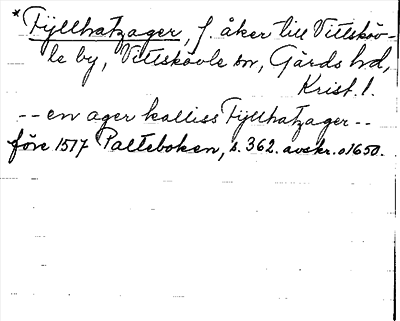 *Fijllhatzager, f. åker till Vittsköv-
le by, Vittskövle sn, Gärds hd,
Krist. l.
-- en ager kalliss Fijllhatzager --
före 1517 Palteboken, s. 362. avskr. o 1650.